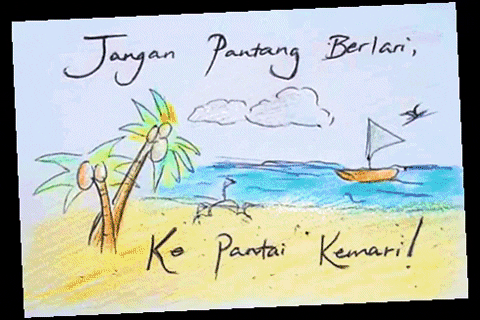 Jangan Pantang Berlari,
Ke Pantai Kemari!